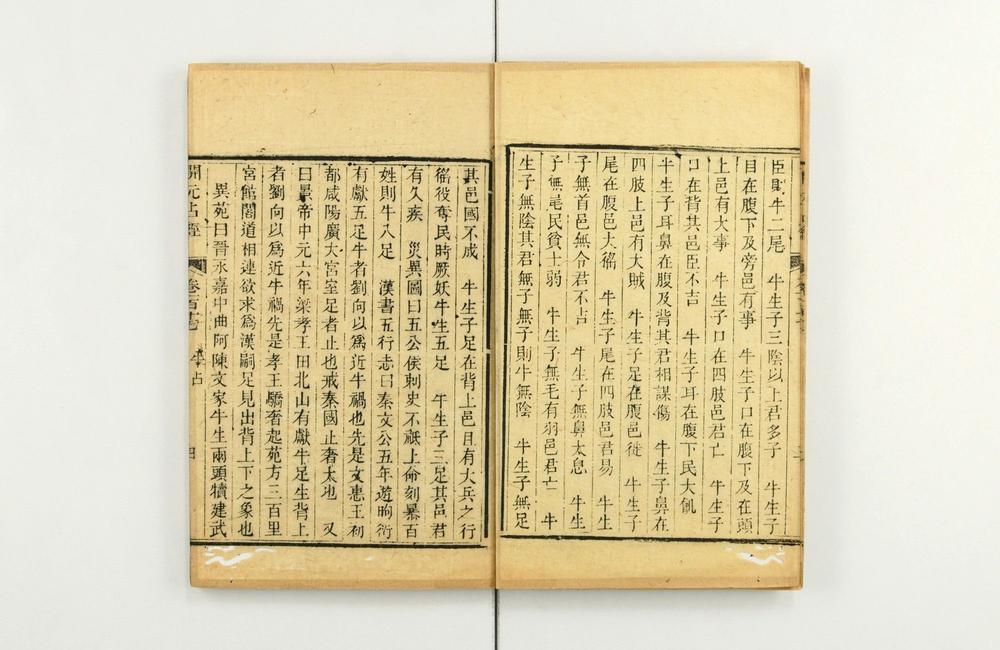 臣則牛二尾　牛生子三陰以上君多子　牛生子
目在腹下及旁邑有事　牛生子口在腹下及在頭
上邑有大事　牛生子口在四肢邑君亡　牛生子
口在背其邑臣不吉　牛生子耳在腹下民大飢
牛生子耳鼻在腹及背其君相謀傷　牛生子鼻在
四肢上邑有大賊　牛生子足在腹邑徙　牛生子
尾在腹邑大徭　牛生子尾在四肢邑君易　牛生
子無首邑無令君不吉　牛生子無鼻大息　牛生
子無尾民貧士弱　牛生子無毛有羽邑君亡　牛
生子無陰其君無子無子則牛無陰　牛生子無足
其邑國不成　牛生子足在背上邑且有大兵之行
徭役奪民時厥妖牛生五足　牛生子三足其邑君
有久疾　災異圖曰五公侯刺史不祗上命刻暴百
姓則牛八足　漢書五行志曰秦文公五年遊朐衍
有獻五足牛者劉向以為近牛禍也先是文惠王初
都咸陽廣大宮室足者止也戒秦國止奢太也　又
曰景帝中元六年梁孝王田北山有獻牛足生背上
者劉向以為近牛禍先是孝王驕奢起苑方三百里
宮館閣道相連欲求為漢嗣足見出背上下之象也
異苑曰晉永嘉中曲阿陳文家牛生兩頭犢建武
開元占經　卷百　牛占　四